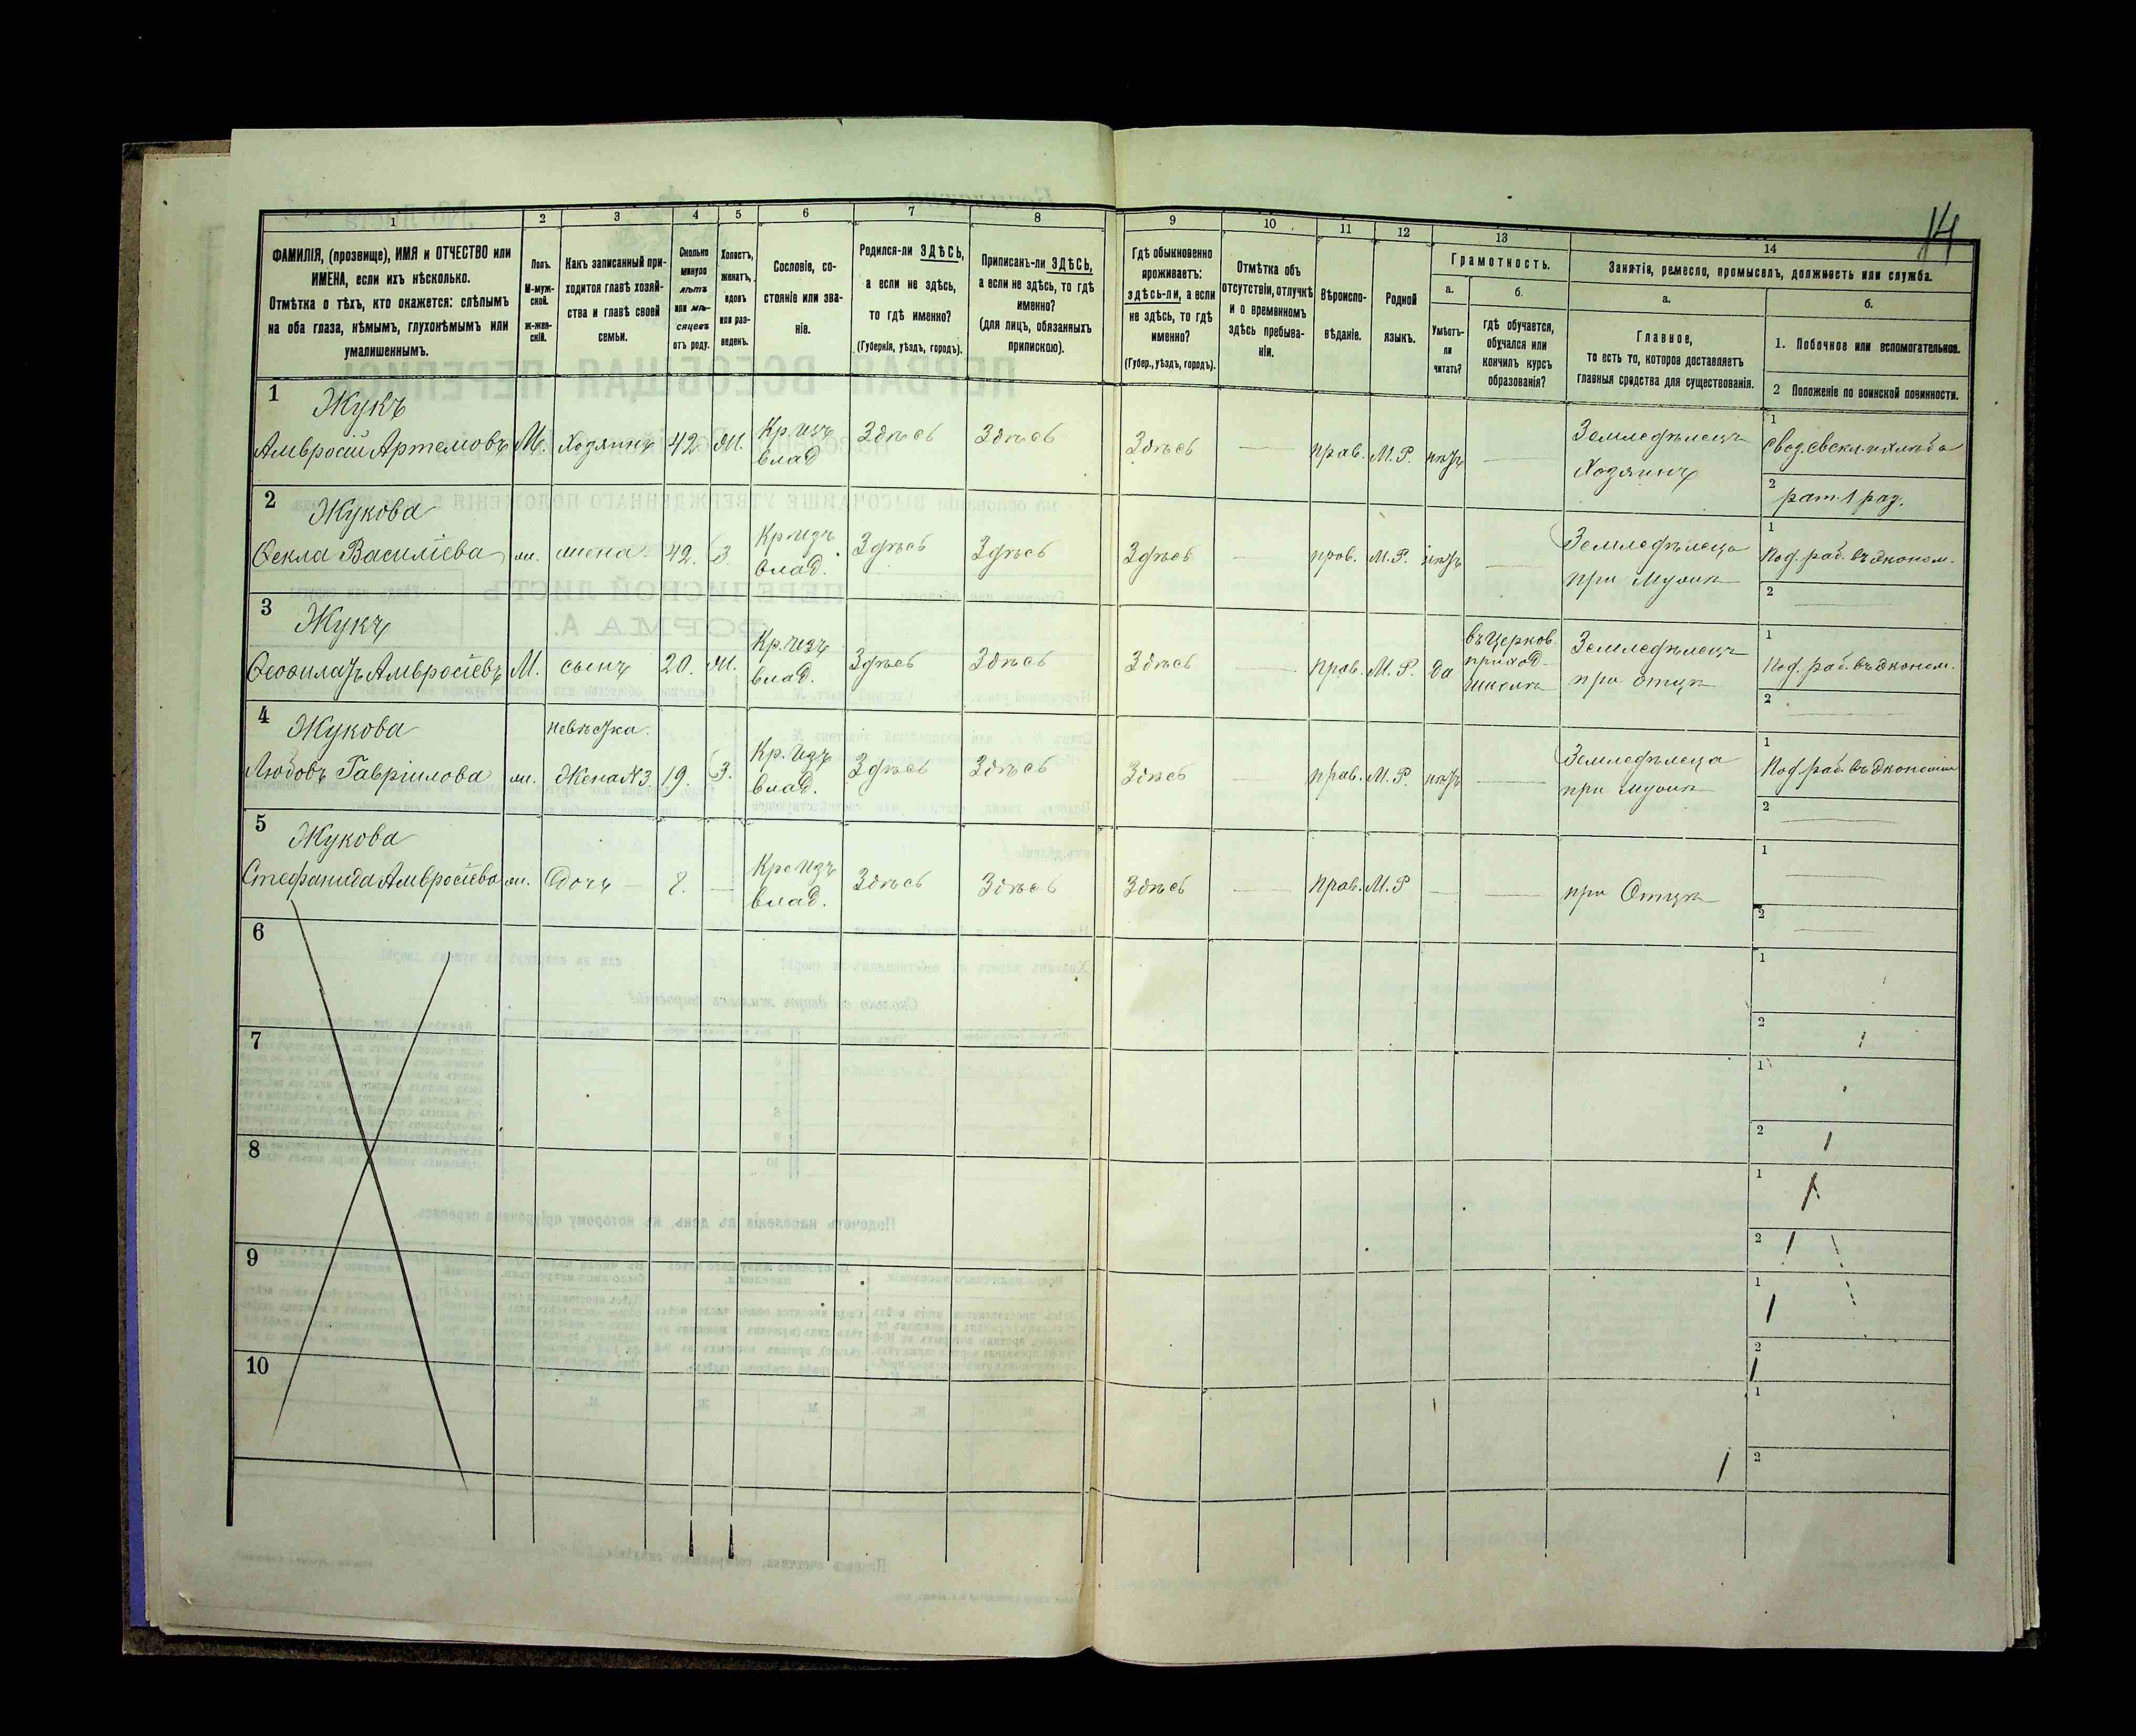 14
1 2 3 4 5 6 7 8 9 10 11 12 13 14
ФАМИЛІЯ, (прозвище), ИМЯ и ОТЧЕСТВО или
ИМЕНА, если ихъ нѣсколько.
Отмѣтка о тѣхъ, кто окажется: слѣпымъ
на оба глаза, нѣмымъ, глухонѣмымъ или
умалишеннымъ.
Полъ.
М-муж-
ской.
ж-жен-
скій.
Какъ записанный при-
ходится главѣ хозяй-
ства и главѣ своей
семьи.
Сколько
минуло
лѣтъ
или мѣ-
сяцевъ
отъ роду.
Холостъ,
женатъ,
вдовъ
или раз-
веденъ.
Сословіе, со-
стояніе или зва-
ніе.
Родился-ли ЗДѢСЬ,
а если не здѣсь,
то гдѣ именно?
(Губернія, уѣздъ, городъ).
Приписанъ-ли ЗДѢСЬ,
а если не здѣсь, то гдѣ
именно?
(для лицъ, обязанныхъ
припискою).
Гдѣ обыкновенно
проживаетъ:
здѣсь-ли, а если
не здѣсь, то гдѣ
именно?
(Губер., уѣздъ, городъ).
Отмѣтка объ
отсутствіи, отлучкѣ
и о временномъ
здѣсь пребыва-
ніи.
Вѣроиспо-
вѣданіе.
Родной
языкъ.
Грамотность.
а.
Умѣетъ-
ли
читать?
б.
гдѣ обучается,
обучался или
кончилъ курсъ
образованія?
Занятіе, ремесло, промыселъ, должность или служба.
а.
Главное,
то есть то, которое доставляетъ
главныя средства для существованія.
б.
1. Побочное или вспомогательное.
2 Положеніе по воинской повинности.
1
Жукъ
Амвросій Артемовъ М. Хозяинъ 42 Ж. Кр. изъ влад Здѣсь Здѣсь Здѣсь — прав. М.Р. нѣтъ — Земледѣлецъ Хозяинъ
1
2 рат. 1 раз.
2
Жукова
Ѳекла Василіева ж. жена 42. З. Кр. изъ влад. Здѣсь Здѣсь Здѣсь — прав. М.Р. нѣтъ — Земледѣлица при Мужѣ
1 Под. раб. въ эконом.
2 —
3
Жукъ
Ѳеофилатъ Амвросіевъ М. сынъ 20. Ж. Кр. изъ влад. Здѣсь Здѣсь Здѣсь — прав. М.Р. да въ церков. приход. школѣ Земледѣлецъ при отцѣ
1 Под. раб. въ эконом.
2 —
4
Жукова невѣстка.
Любовь Гавріилова ж. Жена №3 19. З. Кр. изъ влад. Здѣсь Здѣсь Здѣсь — прав. М.Р. нѣтъ — Земледѣлица при мужѣ
1 Под. раб. въ экономіи
2 —
5
Жукова
Стефанида Амвросіева ж. Дочь 8. — Кр. изъ влад. Здѣсь Здѣсь Здѣсь — прав. М.Р — — при Отцѣ
1
2 —
6
1
2
7
1
2
8
1
2
9
1
2
10
1
2